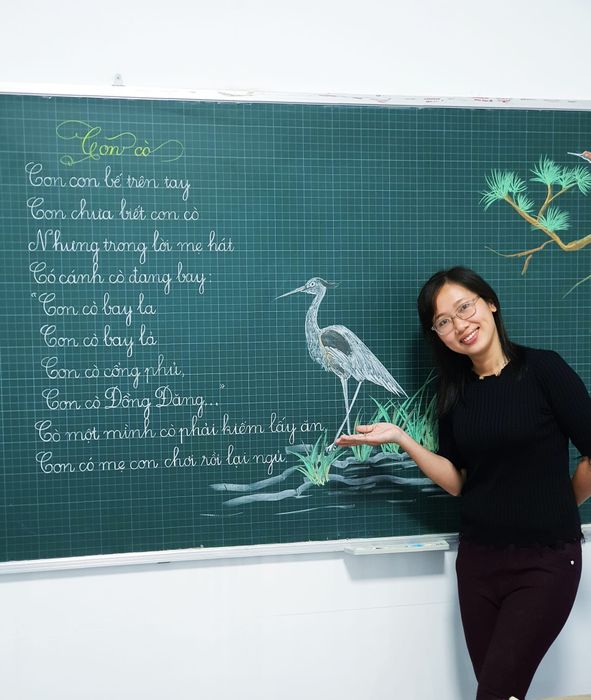 Con cò
Con còn bế trên tay
Con chưa biết con cò
Nhưng trong lời mẹ hát
Có cánh cò đang bay:
"Con cò bay la
Con cò bay lả
Con cò cổng phủ,
Con cò Đồng Đăng..."
Cò một mình cò phải kiếm lấy ăn,
Con có mẹ con chơi rồi lại ngủ.